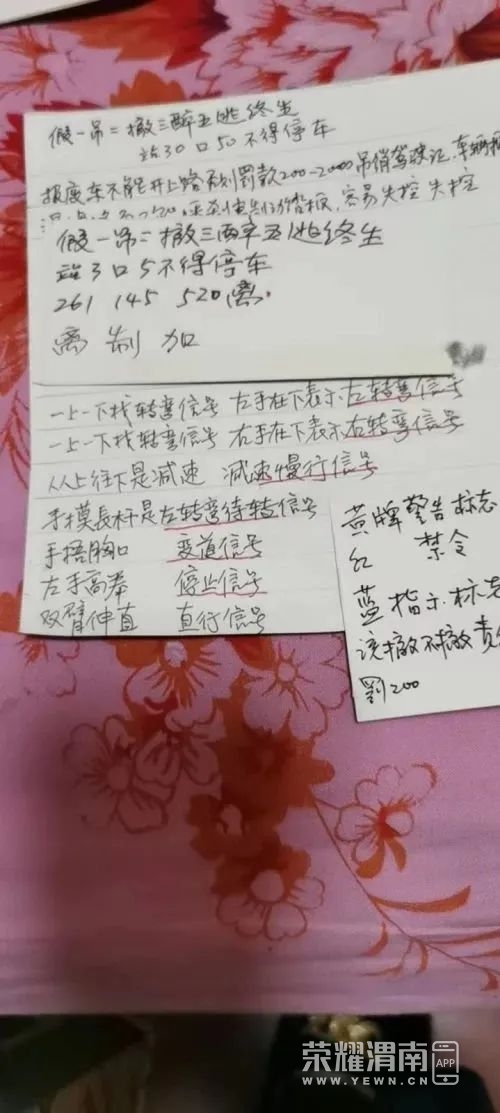 假一吊二撤三醉五逃终生
站30口50不得停车
报废车不能开上路否则罚款200-2000吊销驾驶证.车辆
容易失控 失控
假一吊二撤三醉五逃终生
站3口5不得停车
261 145 520离.
离 制 加
一上一下找转弯信号 左手在下表示左转弯信号
一上一下找转弯信号 右手在下表示右转弯信号
从上往下是减速 减速慢行信号
手摸長杆是左转弯待转信号
手捂胸口 变道信号
左手高奉 停止信号
双臂伸直 直行信号
黄牌警告标志
红 禁令
蓝指示标志
该撤不撤责
罰200
荣耀渭南 APP
WWW.YEWN.CN